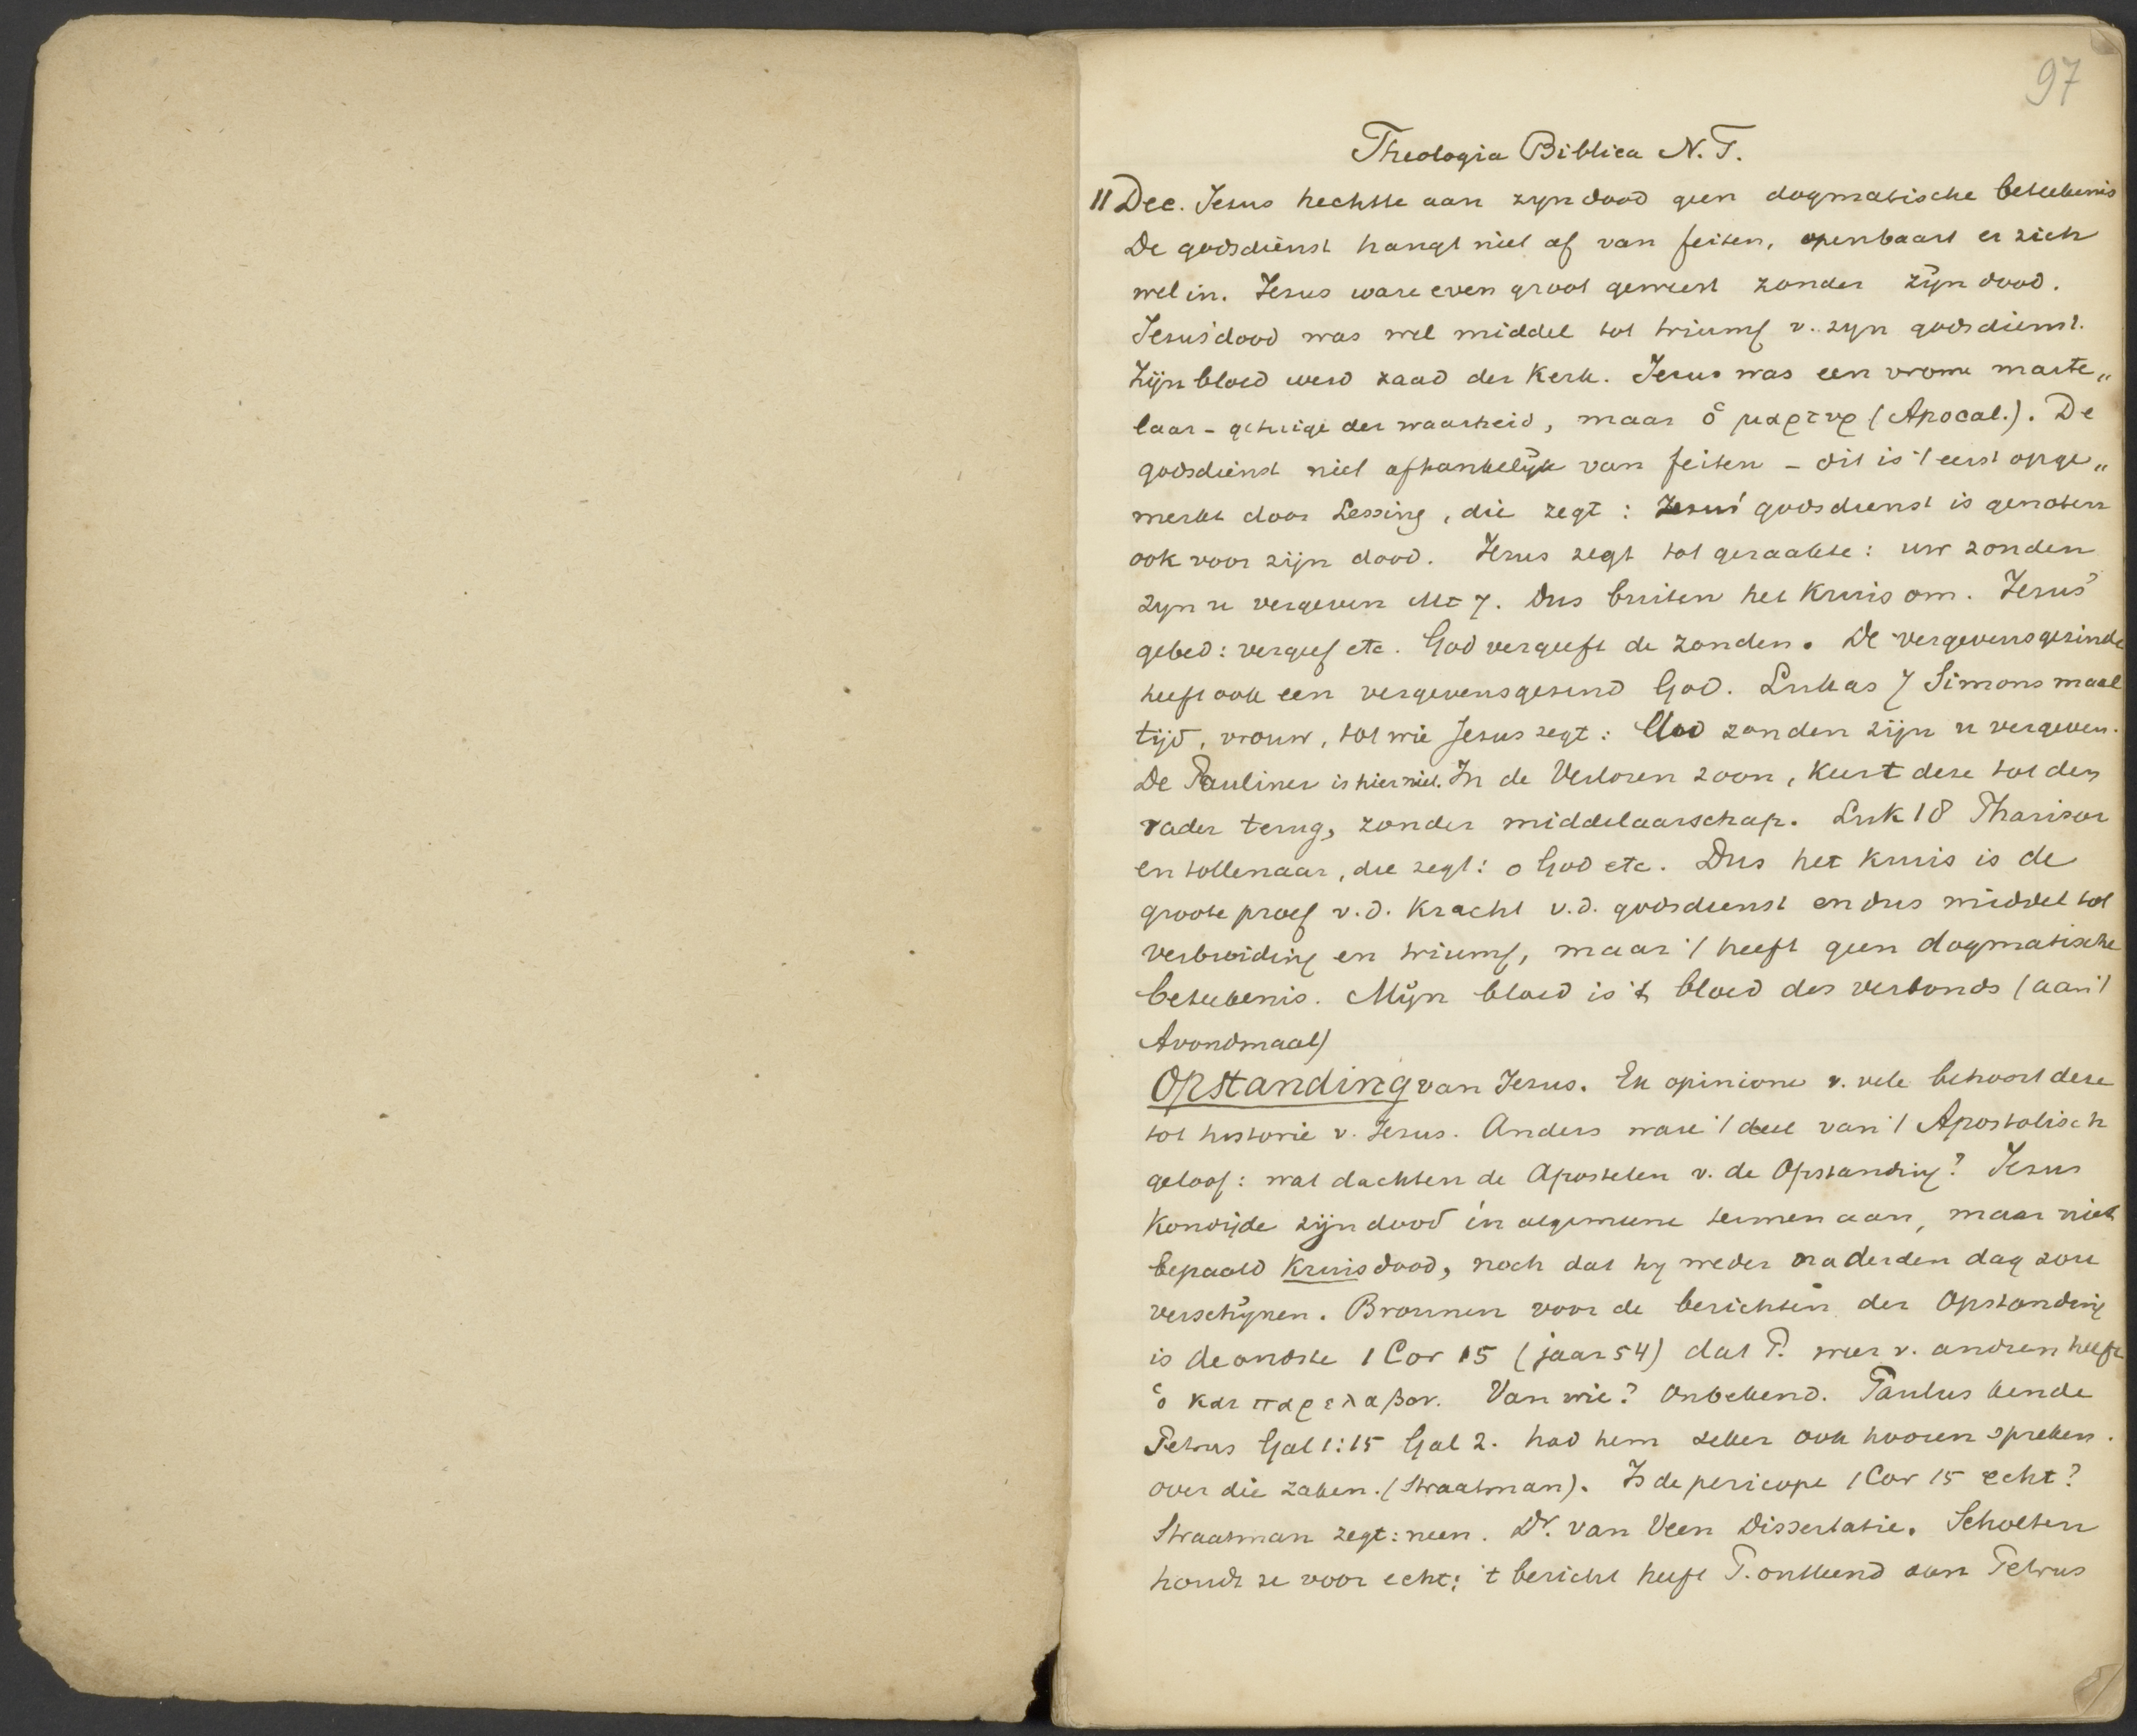 97
Theologia Biblica N.T.
11 Dec. Jesus hechtte aan zyn dood geen dogmatische beteekenis
De godsdienst hangt niet af van feiten, openbaart er zich
wel in. Jesus ware even groot geweest zonder zijn dood.
Jesus' dood was wel middel tot triumf v. zyn godsdienst.
Zijn bloed werd zaad der Kerk. Jesus was een vrome marte„
laar - getuige der waarheid, maar ὁ μαρτυρ (Apocal.). De
godsdienst niet afhankelijk van feiten - dit is 't eerst opge„
merkt door Lessing, die zegt: Jesus' godsdienst is genoten
ook voor zijn dood. Jesus zegt tot geraakte: uw zonden
zyn u vergeven Mt 7. Dus buiten het Kruis om. Jesus'
gebed: vergeef etc. God vergeeft de zonden. De vergevensgezinde
heeft ook een vergevensgezind God. Lukas 7 Simons maal
tijd, vrouw, tot wie Jesus zegt: Uw zonden zijn u vergeven.
De Pauliner is hier niet. In de Verloren zoon, keert deze tot den
vader terug, zonder middelaarschap. Luk 18 Pharisaer
en tollenaar, die zegt: o God etc. Dus het kruis is de
groote proef v.d. Kracht v.d. godsdienst en dus middel tot
verbreiding en triumf, maar 't heeft geen dogmatische
beteekenis. Mijn bloed is 't bloed des verbonds (aan 't
Avondmaal)
Opstanding van Jesus. Ex opinione v. vele behoort deze
tot historie v. Jesus. Anders ware 't deel van 't Apostolisch
geloof: wat dachten de Apostelen v. de Opstanding? Jesus
Kondigde zijn dood in algemeene termen aan, maar niet
bepaald Kruisdood, noch dat hy weder na derden dag zou
verschijnen. Bronnen voor de berichten der Opstanding
is de oudste 1 Cor 15 (jaar 54) dat P. weer v. andren heeft
ὁ και παρελαβον. Van wie? Onbekend. Paulus kende
Petrus Gal 1:15 Gal 2. had hem zeker ook hooren spreken.
over die zaken. (Straatman). Is de pericope 1 Cor 15 echt?
Straatman zegt: neen. Dr. van Veen Dissertatie. Scholten
houdt ze voor echt: 't bericht heeft P. ontleend aan Petrus